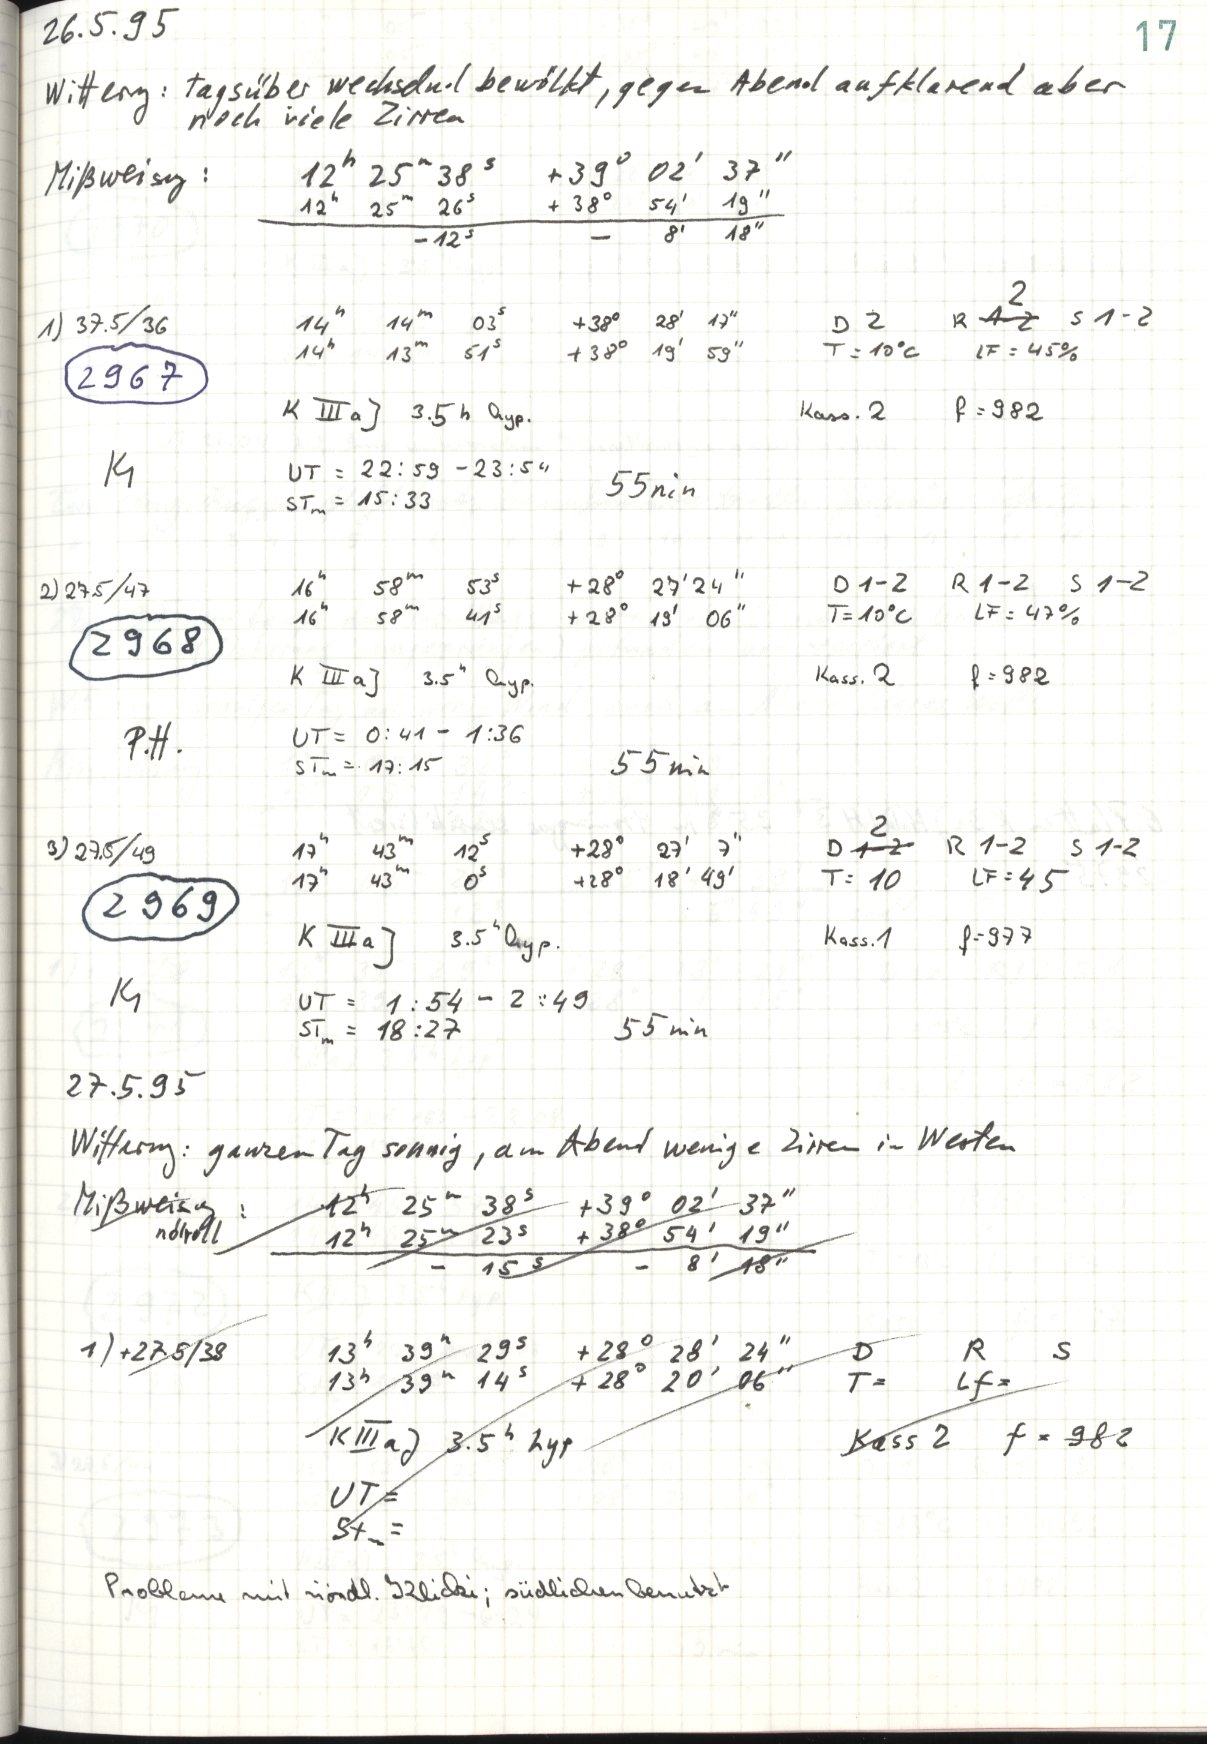 26.5.95
17
Witterung: tagsüber wechselnd bewölkt, gegen Abend aufklarend aber
noch viele Zirren
Mißweisung: 12h 25m 38s +39° 02' 37"
12h 25m 26s +38° 54' 19"
-12s - 8' 18"
2
1) 37.5/36 14h 14m 03s +38° 28' 17" D 2 R 1-2 S 1-2
14h 13m 51s +38° 19' 59" T = 10°C LF = 45%
2967
K IIIaJ 3.5h hyp. Kass. 2 f = 982
UT = 22:59 - 23:54
55 min
STm = 15:33
2) 27.5/47 16h 58m 53s +28° 27' 24" D 1-2 R 1-2 S 1-2
16h 58m 41s +28° 19' 06" T = 10°C LF = 47%
2968
K IIIaJ 3.5h hyp. Kass. 2 f = 982
P.H. UT = 0:41 - 1:36
STm = 17:15 55 min
2
3) 27.5/49 17h 43m 12s +28° 27' 7" D 1-2 R 1-2 S 1-2
17h 43m 0s +28° 18' 49' T = 10 LF = 45
2969
K IIIaJ 3.5h hyp. Kass. 1 f = 977
UT = 1:54 - 2:49
STm = 18:27 55 min
27.5.95
Witterung: ganzen Tag sonnig, am Abend wenige Zirren in Westen
Mißweisung: 12h 25m 38s +39° 02' 37"
12h 25m 23s +38° 54' 19"
- 15s - 8' 18"
1) +27.5/38 13h 39m 29s +28° 28' 24" D R S
13h 39m 14s +28° 20' 06" T = Lf =
KIIIaJ 3.5h hyp Kass 2 f = 982
UT =
Stm =
Probleme mit nördl. ; südlichen benutzt